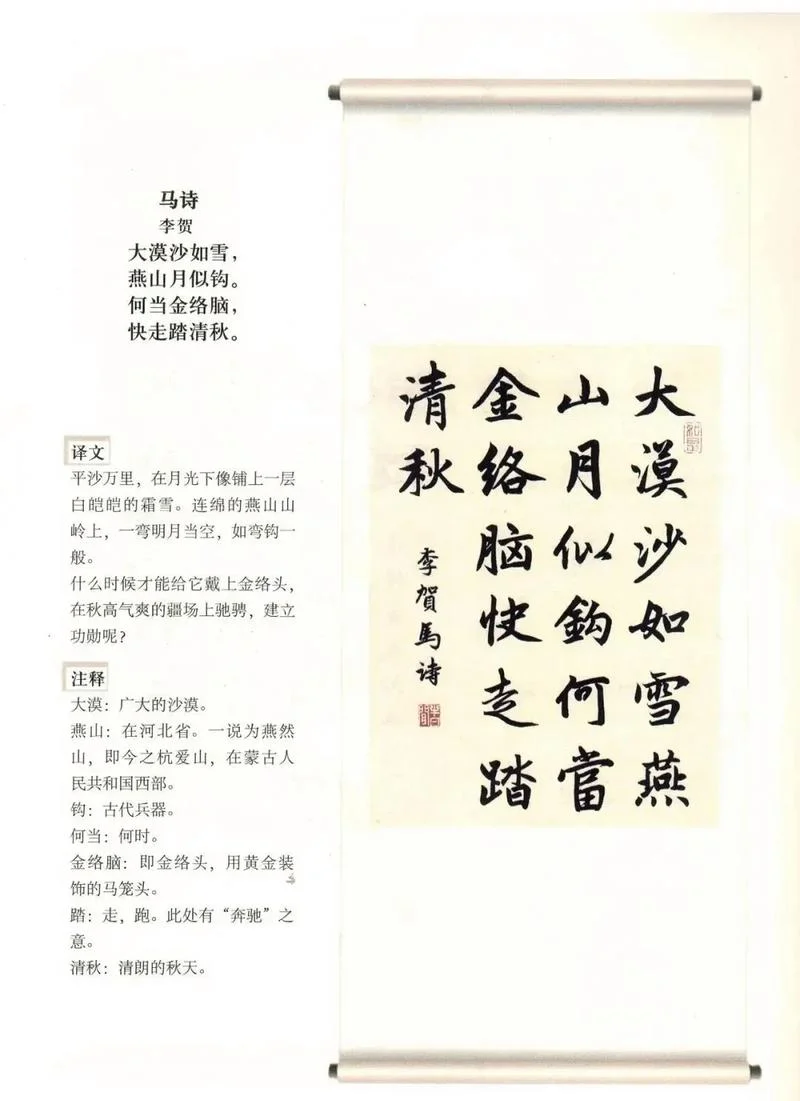 马诗
李贺
大漠沙如雪，
燕山月似钩。
何当金络脑，
快走踏清秋。
译文
平沙万里，在月光下像铺上一层
白皑皑的霜雪。连绵的燕山山
岭上，一弯明月当空，如弯钩一
般。
什么时候才能给它戴上金络头，
在秋高气爽的疆场上驰骋，建立
功勋呢？
注释
大漠：广大的沙漠。
燕山：在河北省。一说为燕然
山，即今之杭爱山，在蒙古人
民共和国西部。
钩：古代兵器。
何当：何时。
金络脑：即金络头，用黄金装
饰的马笼头。
踏：走，跑。此处有“奔驰”之
意。
清秋：清朗的秋天。
大漠沙如雪燕
山月似鈎何當
金络脑快走踏
清秋
李賀馬诗